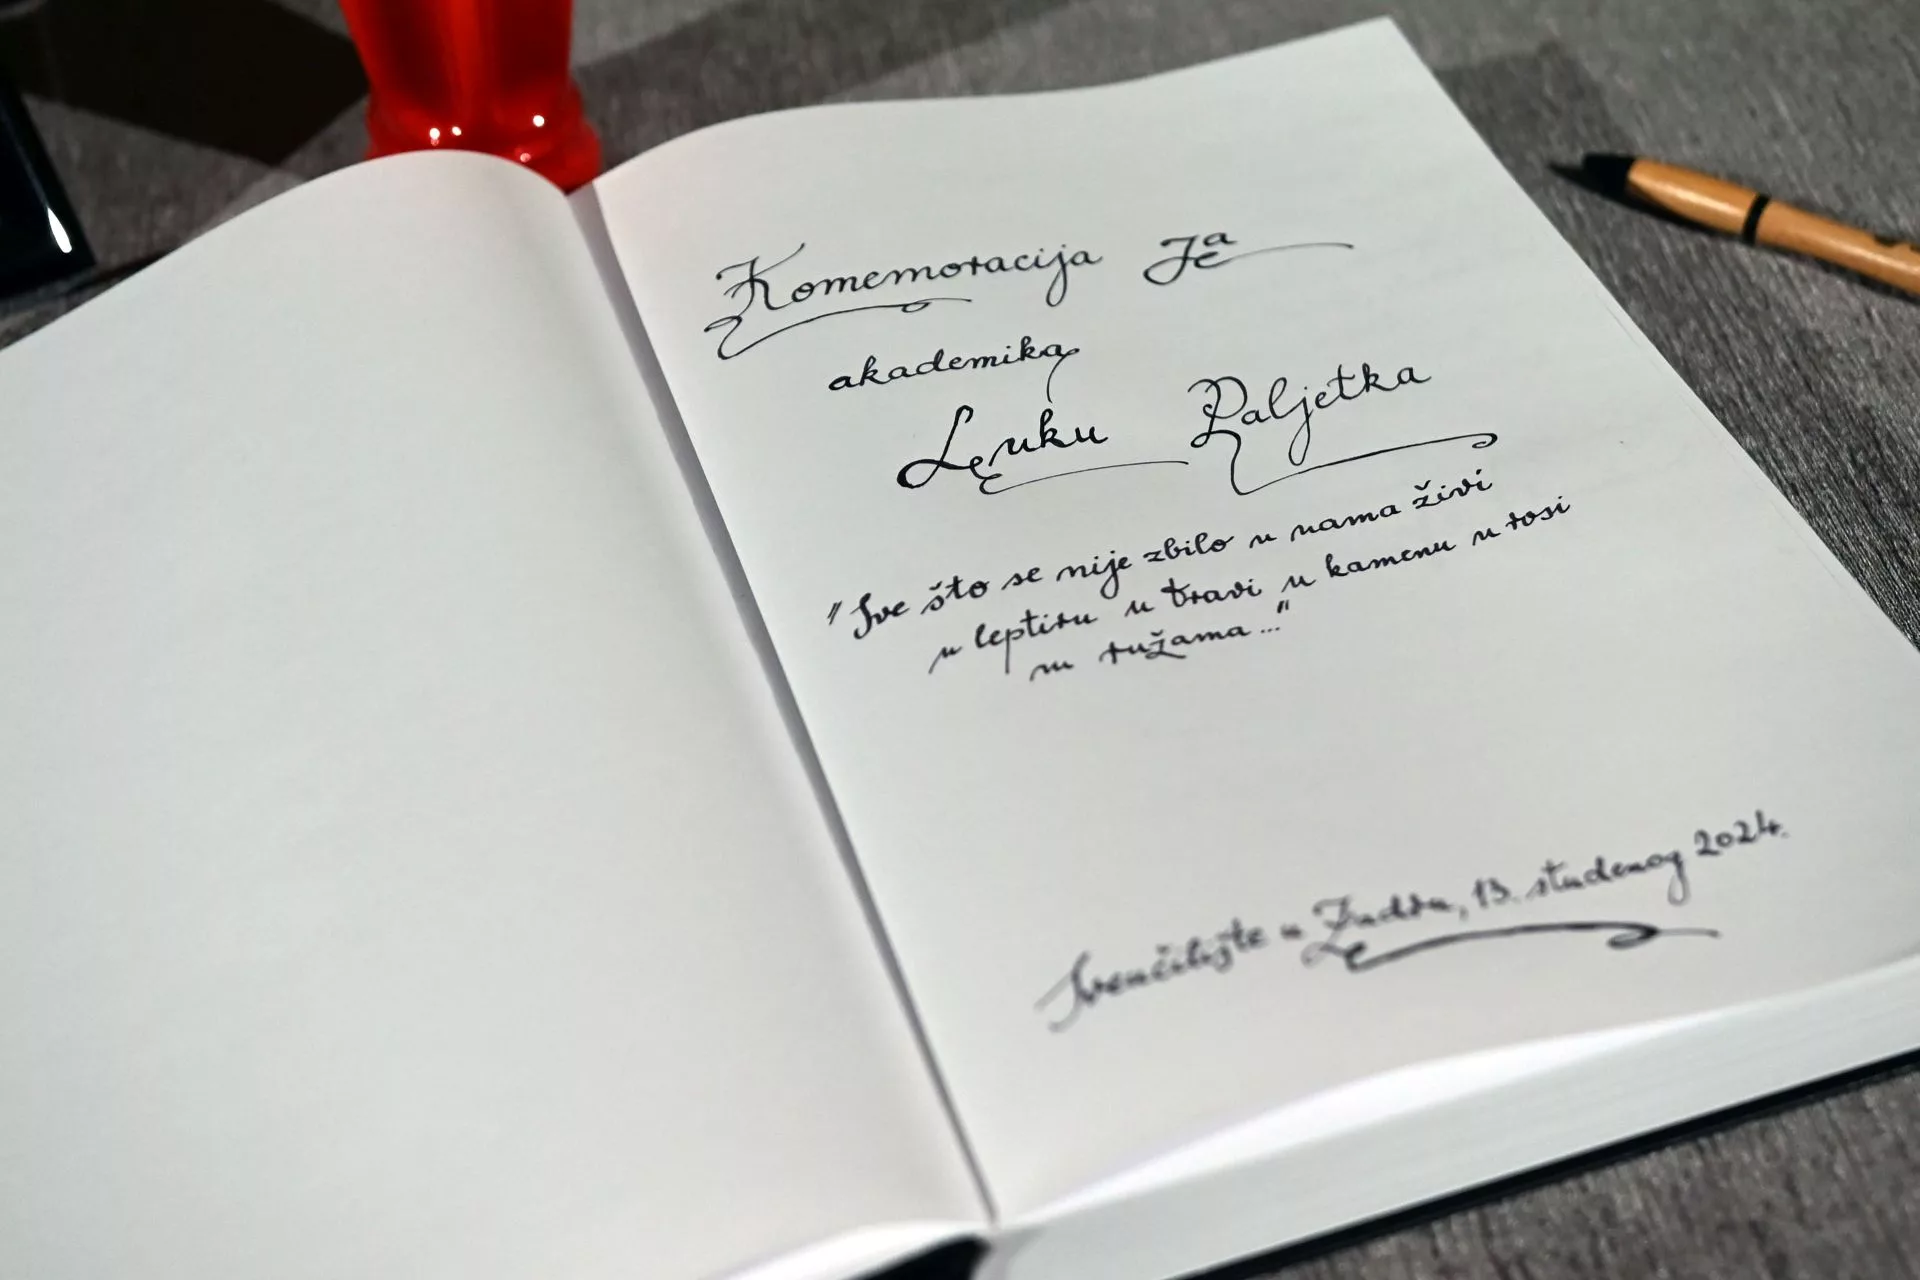 Komemoracija za
akademika
Luku Paljetka
"Sve što se nije zbilo u nama živi
u leptiru u travi u kamenu u rosi
u ružama..."
Sveučilište u Zadru, 13. studenog 2024.